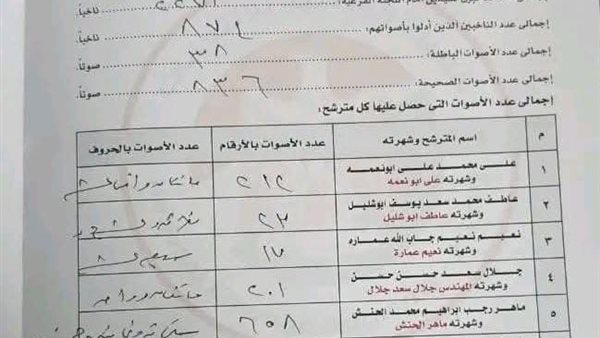 أمام اللجنة الفرعية: ناخباً.
إجمالى عدد الناخبين الذين أدلوا بأصواتهم: ٨٧٤ ناخباً.
إجمالى عدد الأصوات الباطلة: ٣٨ صوتاً.
إجمالى عدد الأصوات الصحيحة: ٨٣٦ صوتاً.
إجمالى عدد الأصوات التى حصل عليها كل مترشح:
م اسم المترشح وشهرته عدد الأصوات بالأرقام عدد الأصوات بالحروف
١ على محمد على ابونعمه ٢١٢
وشهرته على ابو نعمه
٢ عاطف محمد سعد يوسف ابوشليل ٢٣
وشهرته عاطف ابو شليل
٣ نعيم نعيم جاب الله عماره ١٧
وشهرته نعيم عمارة
٤ جلال سعد حسن حسن ٢٠١ مائتان وواحد
وشهرته المهندس جلال سعد جلال
٥ ماهر رجب ابراهيم محمد الحنش ٦٥٨
وشهرته ماهر الحنش